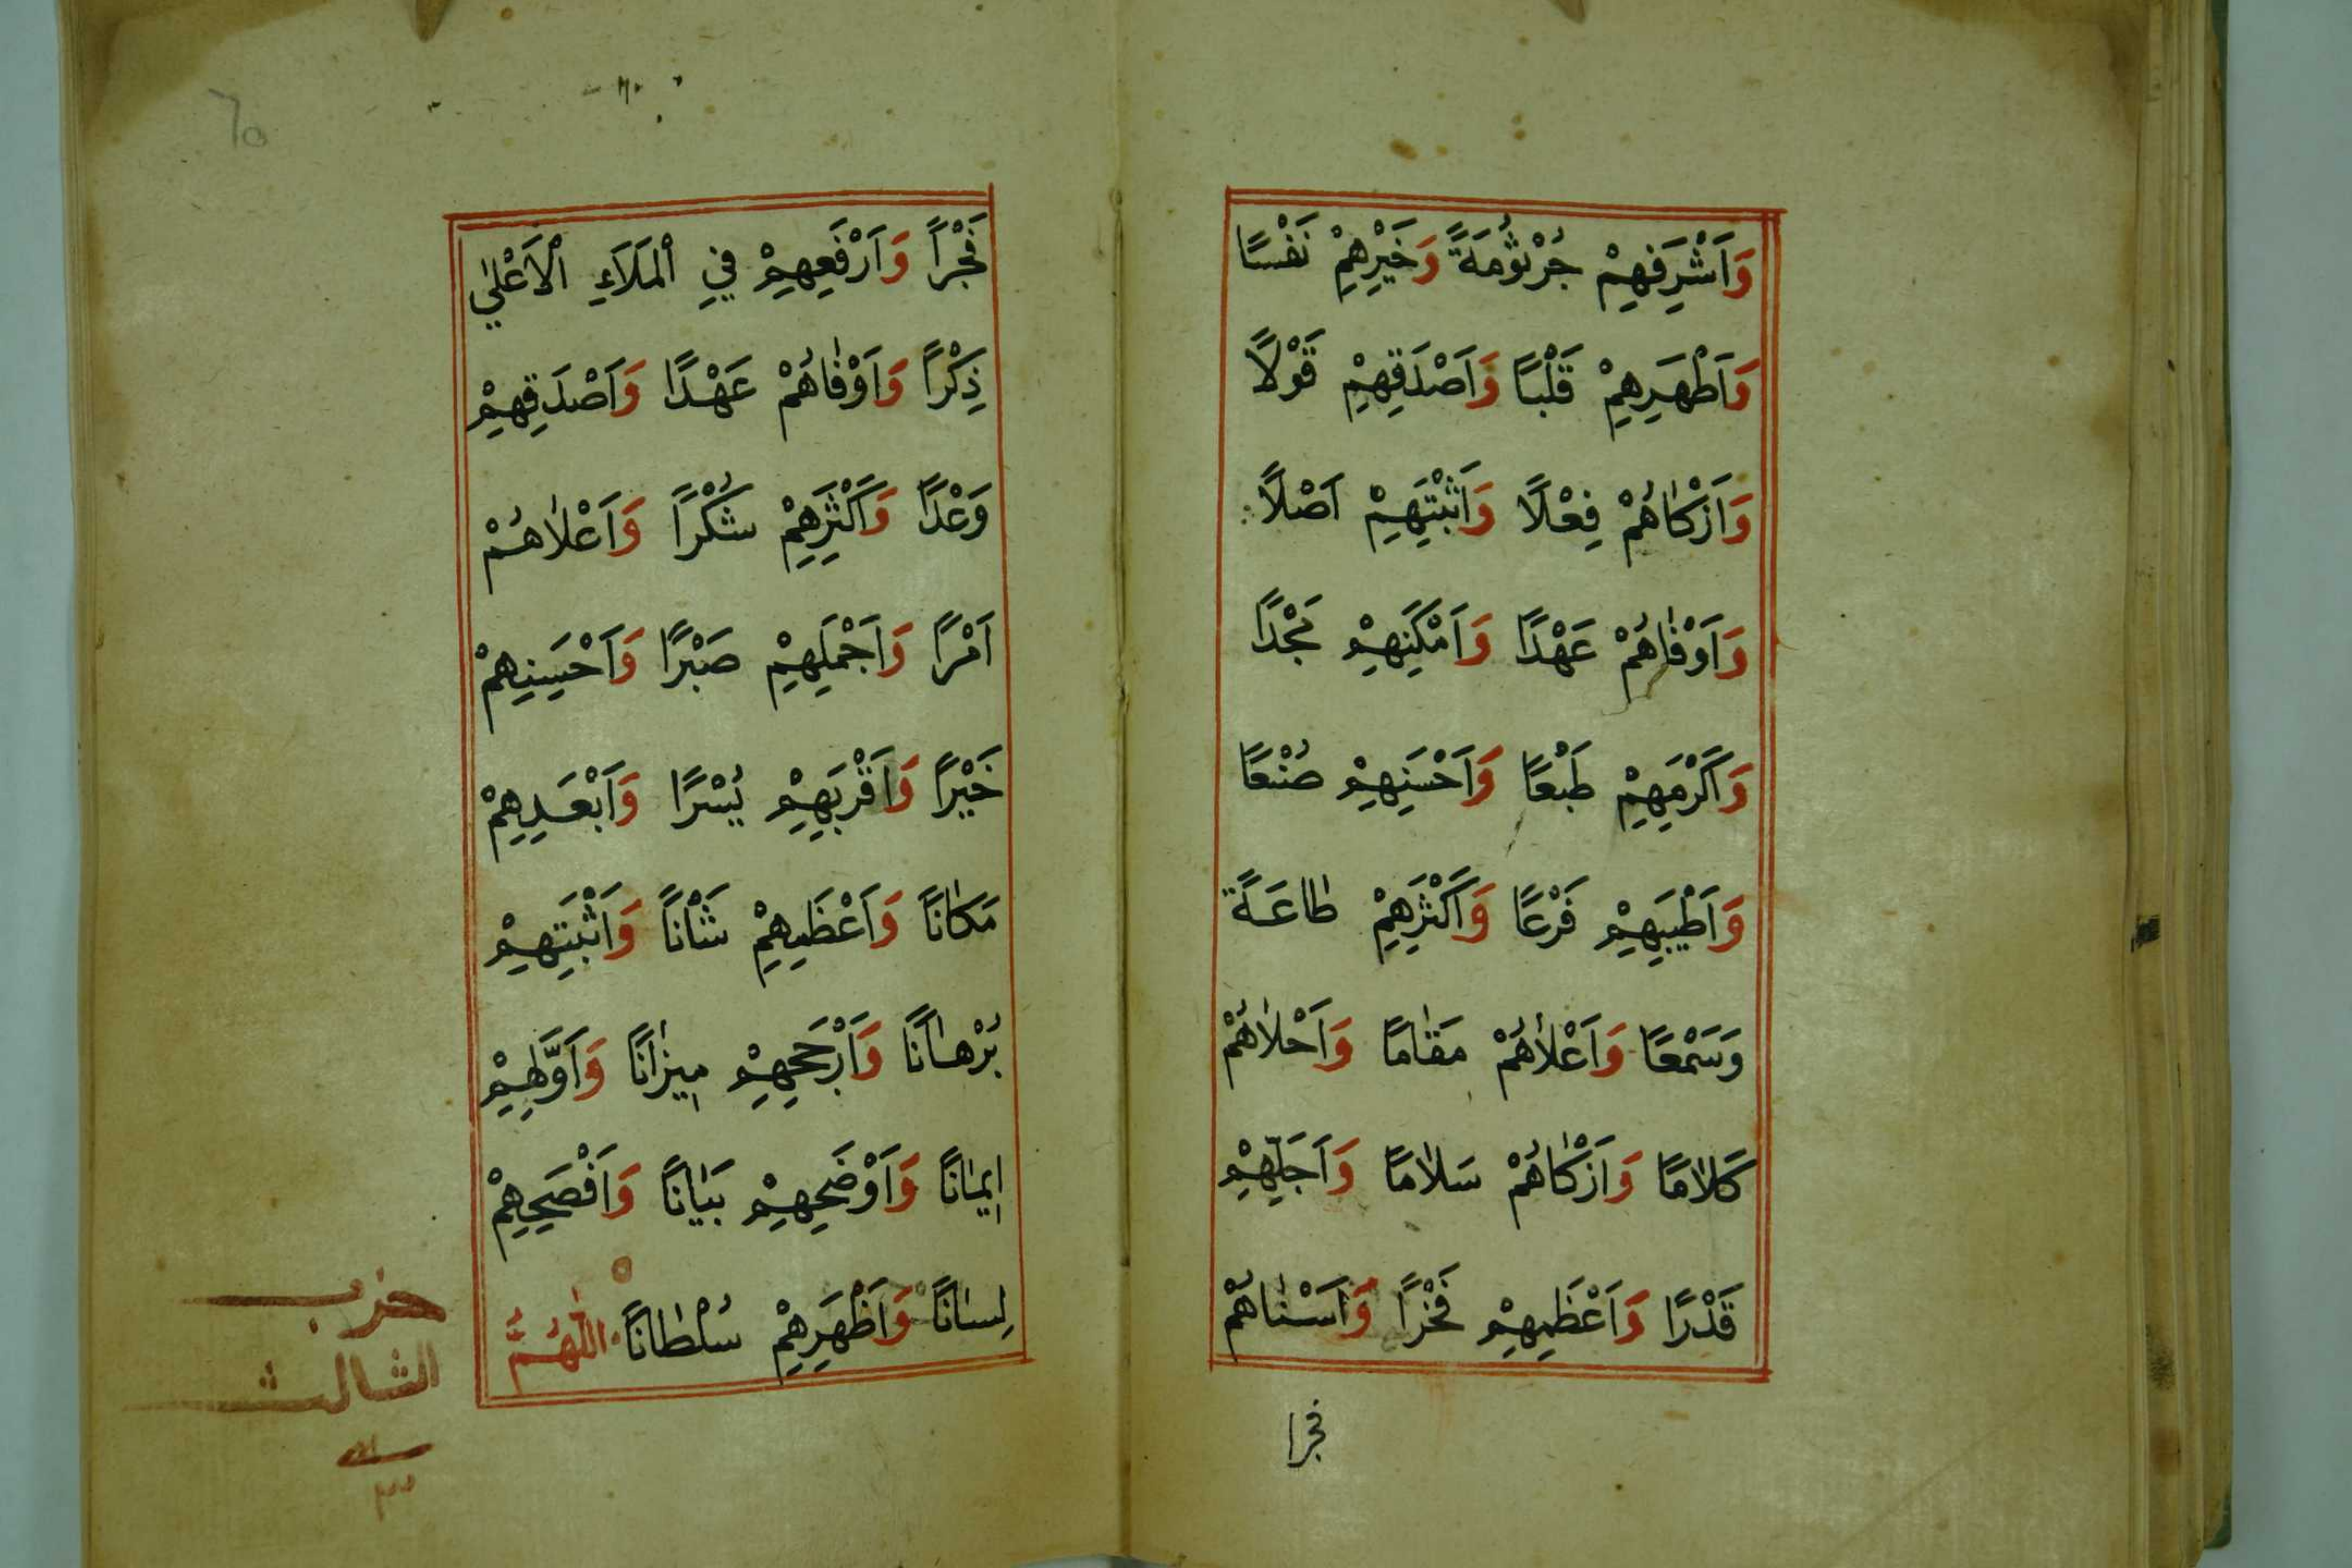 وَاَشْرِفِهِمْ جُرْثُومَةً وَخَيْرِهِمْ نَفْسًا
وَاَطْهَرِهِمْ قَلْبًا وَاَصْدَقِهِمْ قَوْلًا
وَاَزْكَاهُمْ فِعْلًا وَاَثْبَتِهِمْ اَصْلًا
وَاَوْفَاهُمْ عَهْدًا وَاَمْكَنِهِمْ مَجْدًا
وَاَكْرَمِهِمْ طَبْعًا وَاَحْسَنِهِمْ صُنْعًا
وَاَطْيَبِهِمْ فَرْعًا وَاَكْثَرِهِمْ طَاعَةً
وَسَمْعًا وَاَعْلَاهُمْ مَقَامًا وَاَحْلَاهُمْ
كَلَامًا وَاَزْكَاهُمْ سَلَامًا وَاَجَلِّهِمْ
قَدْرًا وَاَعْظَمِهِمْ فَخْرًا وَاَسْنَاهُمْ
فجرا
فَجْرًا وَاَرْفَعِهِمْ فِي الْمَلَاَءِ الْاَعْلٰي
ذِكْرًا وَاَوْفَاهُمْ عَهْدًا وَاَصْدَقِهِمْ
وَعْدًا وَاَكْثَرِهِمْ شُكْرًا وَاَعْلَاهُمْ
اَمْرًا وَاَجْمَلِهِمْ صَبْرًا وَاَحْسَنِهِمْ
خَيْرًا وَاَقْرَبِهِمْ يُسْرًا وَاَبْعَدِهِمْ
مَكَانًا وَاَعْظَمِهِمْ شَأْنًا وَاَثْبَتِهِمْ
بُرْهَانًا وَاَرْجَحِهِمْ مِيزَانًا وَاَوَّلِهِمْ
اِيمَانًا وَاَوْضَحِهِمْ بَيَانًا وَاَفْصَحِهِمْ
لِسَانًا وَاَظْهَرِهِمْ سُلْطَانًا اَللّٰهُمَّ
حزب
الثالث
٦٥